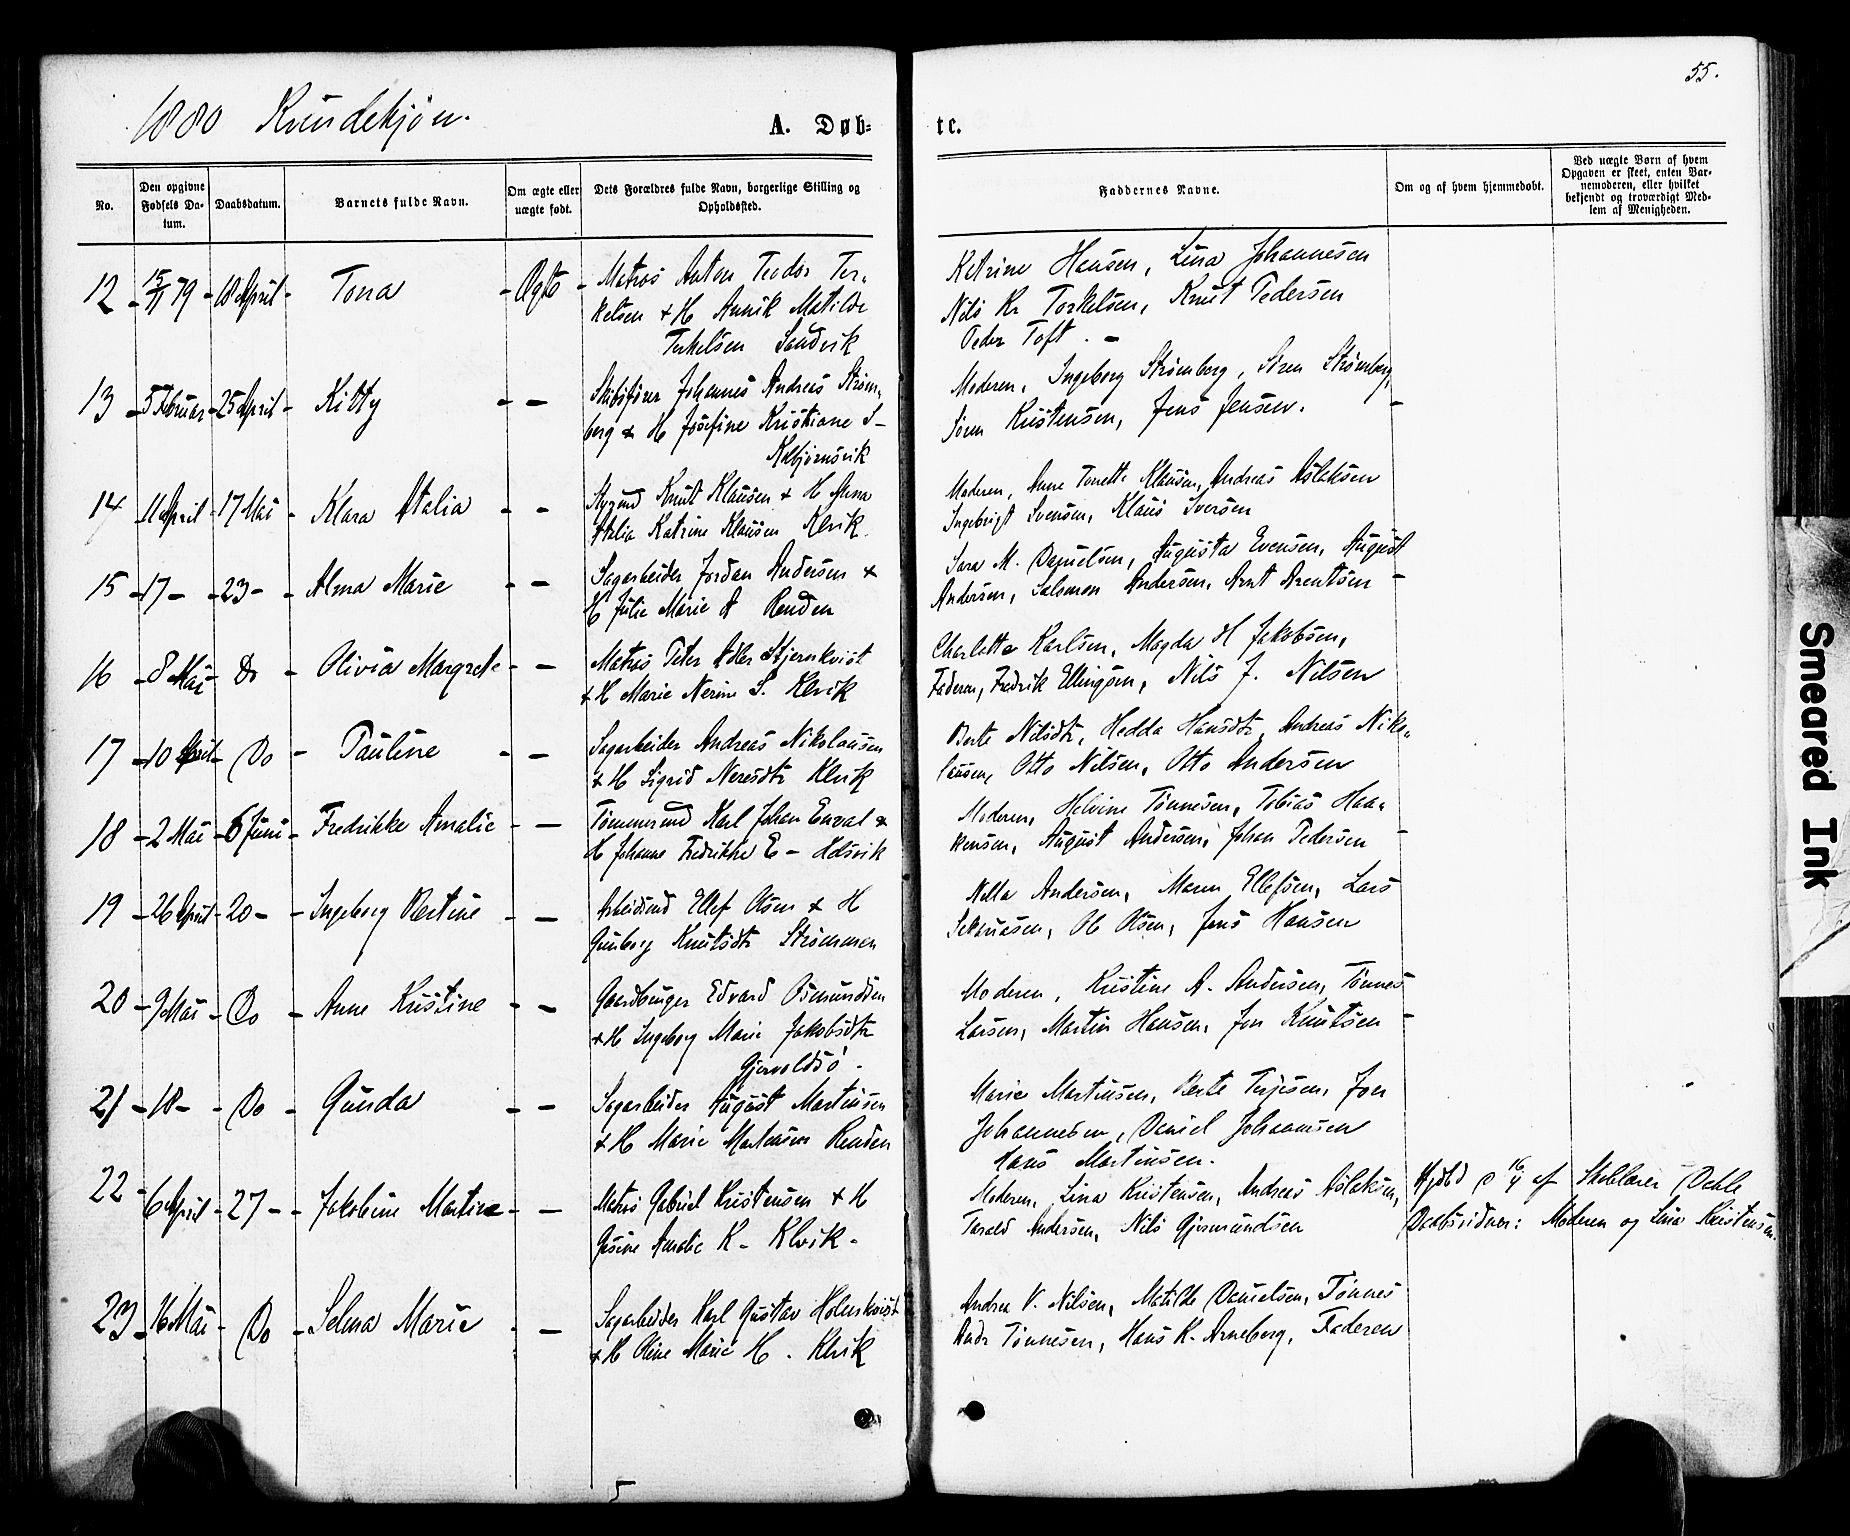 55.
1880 Kvindekjøn.
A. Døb-
te.
No.
Den opgivne Fødsels Da-tum.
Daabsdatum.
Barnets fulde Navn.
Om ægte eller uægte født.
Dets Forældres fulde Navn, borgerlige Stilling og Opholdssted.
Faddernes Navne.
Om og af hvem hjemmedøbt.
Ved uægte Børn af hvem Opgaven er skeet, enten Bar-nemoderen, eller hvilket bekjendt og troværdigt Med-lem af Menigheden.
12 - 15/11 79 - 18 April - Tona - Ægte - Matros Anton Teodor Ter-
kelsen + H Annik Matilde
Terkelsen Sandvik
Katrine Hansen, Lina Johannesen
Nils Kr Torkelsen, Knut Pedersen
Peder Toft. -
13 - 5 Februar - 25 April - Kitty - - Skibsfører Johannes Andreas Strøm-
berg + H Josefine Kristiane S -
Kolbjørnsvik
Moderen, Ingeborg Strømberg, Søren Strømberg,
Søren Kristensen, Jens Jensen. -
14 - 11 April - 17 Mai - Klara Atalia - - Knut Klausen + H Anna
Atalia Katrine Klausen Klvik.
Moderen, Anne Klausen, Andreas Aslaksen
Ingebrigt Svensen, Klaus Iversen
15 - 17 - - 23 - - Alma Marie - - Sagarbeider Jordan Andersen +
H Julie Marie A Renden
Sara M. Danielsen, Augusta Evensen, August
Andersen, Salomon Andersen, Arnt Arentsen -
16 - 8 Mai - Do - Olivia Margrete - - Matros Peter Adler Stjernkvist
+ H Marie Nerine S. Klvik
Charlotte Karlsen, Magda H Jakobsen,
Faderen, Fredrik Ellingsen, Nils J. Nilsen
17 - 10 April - Do - Pauline - - Sagarbeider Andreas Nikolausen
+ H Sigrid Neresdtr Klvik
Berte Nilsdtr, Hedda Hansdtr, Andreas Niko-
lausen, Otto Nilsen, Otto Andersen
18 - 2 Mai - 6 Juni - Fredrikke Amalie - - Tømmermd Karl Johan Enval +
H Johanne Fredrikke E -
Moderen, Helvine Tønnesen, Tobias Haa-
kensen, August Andersen, Johan Pedersen -
19 - 26 April - 20 - - Ingeborg Bertine - - Arbeidsmd Ellef Olsen + H
Gunborg Knutsdtr Strømmen
Nella Andersen, Maren Ellefsen, Lars
Olsen, Jens Hansen
20 - 9 Mai - Do - Anne Kristine - - Gaardbruger Edvard Osmundsen
+ H Ingeborg Marie Jakobsdtr
Gjervoldsø -
Moderen, Kristine A. Andersen, Tønnes
Larsen, Martin Hansen, Jon Knutsen -
21 - 18 - - Do - Gunda - - Sagarbeider August Martinsen
+ H Marie Martinsen Renden
Marie Martinsen, Berte Terjesen, Jon
Johannesen, Daniel Johannsen
Hans Martinsen.
22 - 6 April - 27 - - Jakobine Martine - - Matros Gabriel Kristensen + H
Gusine Amalie K - Klvik -
Moderen, Lina Kristensen, Andreas Aslaksen,
Tarald Andersen, Nils Gjermundsen
Hjdbd d 16/4 af Skolelærer Dahle
Daabsvidner: Moderen og Lina Kristensen.
23 - 16 Mai - Do - Selma Marie - - Sagarbeider Karl Gustav Holmkvist
+ H Oline Marie H. Klvik
Andrea V. Nilsen, Matilde Danielsen, Tønnes
Andr Tønnesen, Hans K. Arneberg, Faderen
5
Smeared Ink